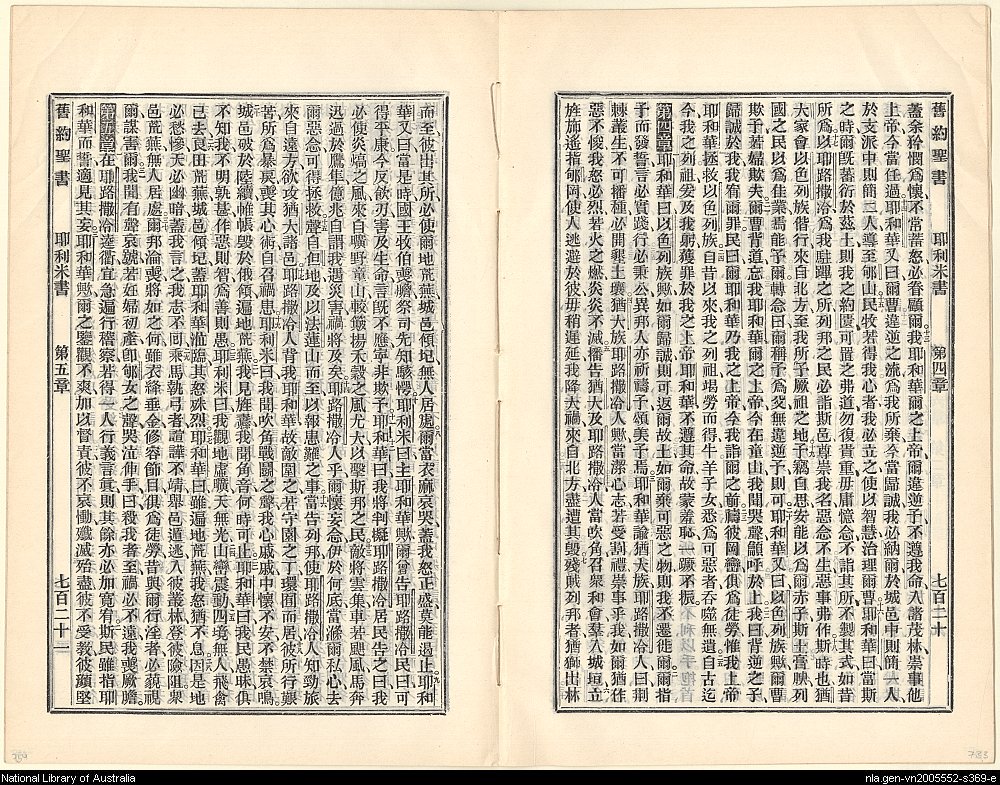 舊約聖書 耶利米書 第四章 七百二十
蓋余矜憫爲懷不常蓄怒必眷顧爾我耶和華爾之上帝爾違逆予不遵我命入諸茂林崇事他
上帝今當任過耶和華又曰爾曹違逆之流爲我所棄今當歸誠我必納爾於城邑中則簡一人
於支派中則簡二人導至郇山民牧若得我心者我必立之使以智慧治理爾曹耶和華曰當斯
之時爾旣蕃衍於茲土則我之約匱可置之弗道勿復貴重毋庸憶念不詣其所不製其式如昔
所爲以耶路撒冷爲我駐蹕之所列邦之民必詣斯邑尊崇我名惡念不生惡事弗作斯時也猶
大家會以色列族偕行來自北方至我所予厥祖之地予竊自思安能以爲爾赤子斯土膏腴列
國之民以爲佳業焉能予爾轉念曰爾稱予爲父無違逆予則可耶和華又曰以色列族歟爾曹
欺予若婦欺夫爾曹背道忘我耶和華爾之上帝今在童山我聞哭聲籲呼於上我曰背逆之子
歸誠於我我宥爾罪民曰爾耶和華乃我之上帝今我詣爾之前禱彼岡巒俱爲徒勞惟我上帝
耶和華拯救以色列族自昔以來我之列祖塲勞而得牛羊子女悉爲可惡者吞噬無遺自古迄
今我之列祖爰及我躬獲罪於我之上帝耶和華不遵其命故蒙羞恥一蹶不振
第四章耶和華曰以色列族歟如爾歸誠則可返爾故土如爾棄可惡之物則我不遷徙爾爾指
予而發誓言必實踐行必秉公異邦人亦祈禱予頌美予焉耶和華諭猶大族耶路撒冷人曰荆
棘叢生不可播種必開墾土壤猶大族耶路撒冷人歟當潔心志若受割禮崇事乎我如爾猶作
惡不悛我怒必烈若火之燃炎炎不滅播告猶大及耶路撒冷人當吹角召衆和會羣入城垣立
旌旆遙指郇岡使人逃避於彼毋稍遲延我降大禍來自北方盡遭其毀殘賊列邦者猶獅出林
而至彼出其所必使爾地荒蕪城邑傾圮無人居處爾當衣麻哀哭蓋我怒正盛莫能遏止耶和
華又曰當是時國王牧伯喪膽祭司先知駭愕耶利米曰主耶和華歟爾曾告耶路撒冷民曰可
得平康今反飮刃害及生命言旣不應寧非欺予耶和華曰我將判擬耶路撒冷居民告之曰我
必使炎熇之風來自曠野童山較簸揚禾穀之風尤大以擊斯邦之民敵將雲集車若颶風馬奔
迅過於鷹隼億兆自謂我遇災害禍將及矣耶路撒冷人乎爾懷妄念伊於何底當滌爾私心去
爾惡念可得拯救聲自但地及以法蓮山而至以報患難之事當告列邦使耶路撒冷人知勁旅
來自遠方欲攻猶大諸邑耶路撒冷人背我耶和華故敵圍之若守園之丁環固而居彼所行艱
苦所爲暴戾喪其心術自召禍患耶利米曰我聞吹角戰鬭之聲我心戚戚中懷不安不禁哀鳴
城邑破於陸續帷帳毀於俄頃遍地荒蕪我見旌纛我聞角音何時可止耶和華曰我民愚昧俱
不知我不明孰甚作惡則智爲善則愚耶利米曰我觀地虛曠天無光山巒震動四境無人飛禽
已去良田荒蕪城邑傾圮蓋耶和華涖臨其怒殊烈耶和華曰雖遍地荒蕪我怒猶不息因是地
必愁慘天必幽暗蓋我言之我志不回乘馬執弓者諠譁不靖舉邑遁逃入彼叢林登彼險阻衆
邑荒蕪無人居處爾邦淪喪將如之何雖衣絳垂金修容飾目俱爲徒勞昔與爾行淫者必藐視
爾謀害爾我聞有聲哀號若妊婦初產卽郇女之聲哭泣伸手曰殺我者至禍必不遠我喪厥膽
第五章在耶路撒冷逵衢宜急遍行稽察若得一人行義言眞則其餘亦必加寬宥斯民雖指耶
和華而誓適見其妄耶和華歟爾之鑒觀不爽加以督責彼不哀慟殲滅殆盡彼不受敎彼頑堅
舊約聖書 耶利米書 第五章 七百二十一
National Library of Australia
nla.gen-vn2005552-s369-e